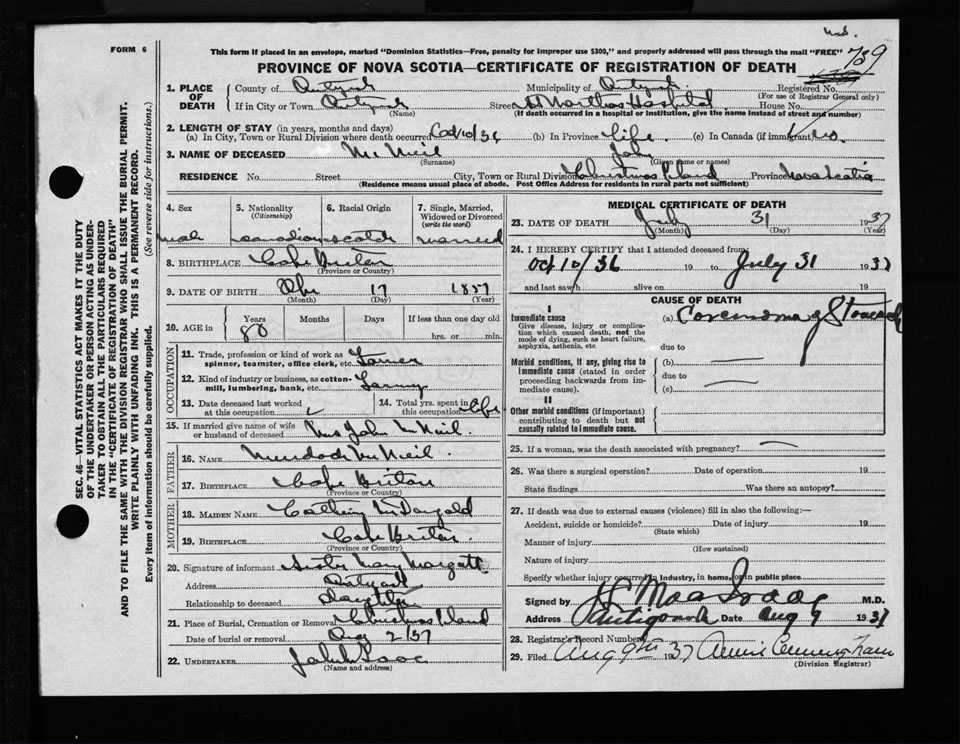 FORM 6
This form if placed in an envelope, marked "Dominion Statistics—Free, penalty for improper use $300," and properly addressed will pass through the mail "FREE"
PROVINCE OF NOVA SCOTIA—CERTIFICATE OF REGISTRATION OF DEATH
789
SEC. 46—VITAL STATISTICS ACT MAKES IT THE DUTY
OF THE UNDERTAKER OR PERSON ACTING AS UNDER-
TAKER TO OBTAIN ALL THE PARTICULARS REQUIRED
IN THE "CERTIFICATE OF REGISTRATION OF DEATH"
AND TO FILE THE SAME WITH THE DIVISION REGISTRAR WHO SHALL ISSUE THE BURIAL PERMIT.
WRITE PLAINLY WITH UNFADING INK. THIS IS A PERMANENT RECORD.
Every item of information should be carefully supplied. (See reverse side for instructions.)
1. PLACE OF DEATH County of Municipality of Registered No.
(For use of Registrar General only)
If in City or Town Street St Marthas Hospital House No.
(Name) (If death occurred in a hospital or institution, give the name instead of street and number)
2. LENGTH OF STAY (in years, months and days)
(a) In City, Town or Rural Division where death occurred Oct 10/36 (b) In Province life (c) In Canada (if immigrant) no
3. NAME OF DECEASED Mc Neil John
(Surname) (Given name or names)
RESIDENCE No. Street City, Town or Rural Division Christmas Island Province Nova Scotia
(Residence means usual place of abode. Post Office Address for residents in rural parts not sufficient)
4. Sex 5. Nationality (Citizenship) 6. Racial Origin 7. Single, Married, Widowed or Divorced (write the word)
male Canadian Scotch married
8. BIRTHPLACE Cape Breton
(Province or Country)
9. DATE OF BIRTH 17 1857
(Month) (Day) (Year)
10. AGE in Years Months Days If less than one day old
80 hrs. or min.
OCCUPATION
11. Trade, profession or kind of work as spinner, teamster, office clerk, etc. Farmer
12. Kind of industry or business, as cotton-mill, lumbering, bank, etc. Farming
13. Date deceased last worked at this occupation
14. Total yrs. spent in this occupation life
15. If married give name of wife or husband of deceased Mrs John McNeil
FATHER
16. NAME Murdoch McNeil
17. BIRTHPLACE Cape Breton
(Province or Country)
MOTHER
18. MAIDEN NAME
19. BIRTHPLACE Cape Breton
(Province or Country)
20. Signature of informant Sister Mary Margaret
Address
Relationship to deceased daughter
21. Place of Burial, Cremation or Removal Christmas Island
Date of burial or removal Aug 2/37
22. UNDERTAKER
(Name and address)
MEDICAL CERTIFICATE OF DEATH
23. DATE OF DEATH July 31 1937
(Month) (Day) (Year)
24. I HEREBY CERTIFY that I attended deceased from
Oct 10/36 19 to July 31 1937
and last saw h alive on 19
CAUSE OF DEATH
I
Immediate cause (a) Carcinoma of Stomach
Give disease, injury or complication which caused death, not the mode of dying, such as heart failure, asphyxia, asthenia, etc.
due to
Morbid conditions, if any, giving rise to immediate cause (stated in order proceeding backwards from immediate cause). (b)
due to
(c)
II
Other morbid conditions (if important) contributing to death but not causally related to immediate cause.
25. If a woman, was the death associated with pregnancy?
26. Was there a surgical operation? Date of operation 19
State findings Was there an autopsy?
27. If death was due to external causes (violence) fill in also the following:—
Accident, suicide or homicide? Date of injury 19
(State which)
Manner of injury
(How sustained)
Nature of injury
Specify whether injury occurred in industry, in home, or in public place
Signed by M.D.
Address Antigonish Date Aug 9 1937
28. Registrar's Record Number
29. Filed Aug 9th 1937 Annie Cunningham
(Division Registrar)